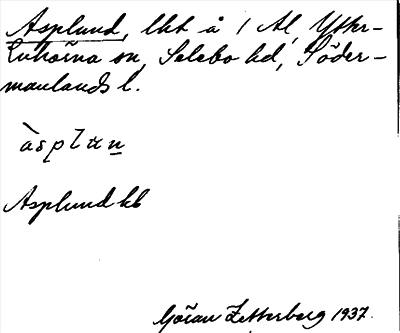 Asplund, lht å 1 Al, Ytter-
Enhörna sn, Selebo hd, Söder-
manlands l.
àsplan
Asplund kb
Göran Zetterberg 1937.